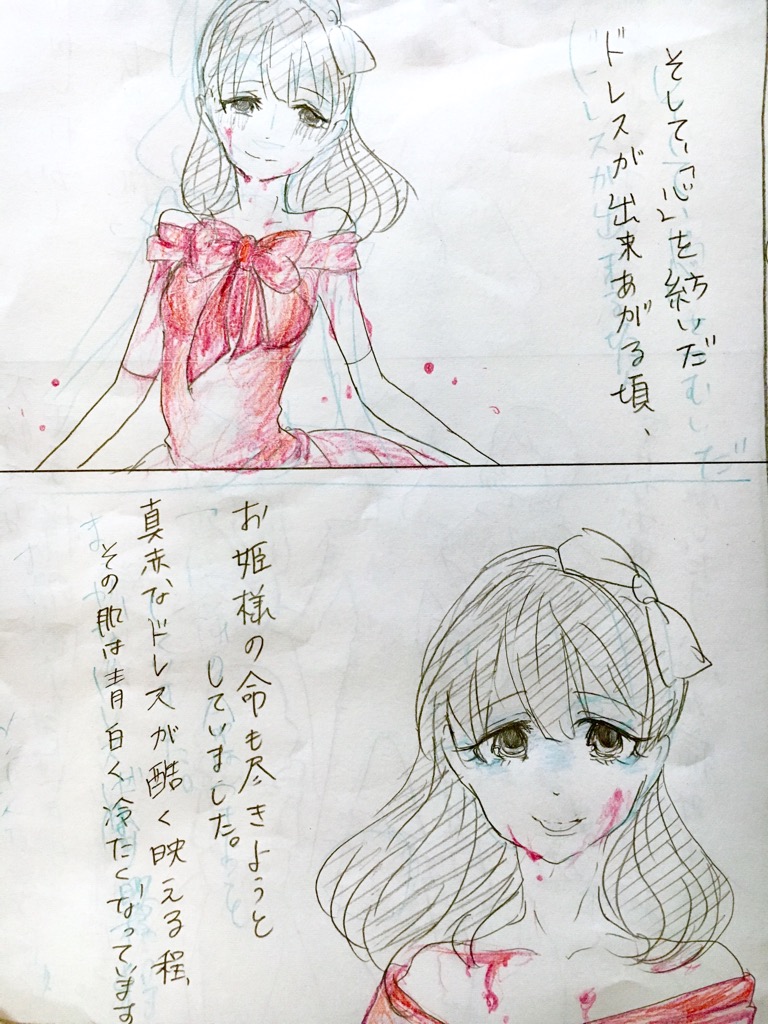 そして、「心」を紡いだ
ドレスが出来あがる頃、
お姫様の命も尽きようと
していました。
真赤なドレスが酷く映える程、
その肌は青白く冷たくなっています